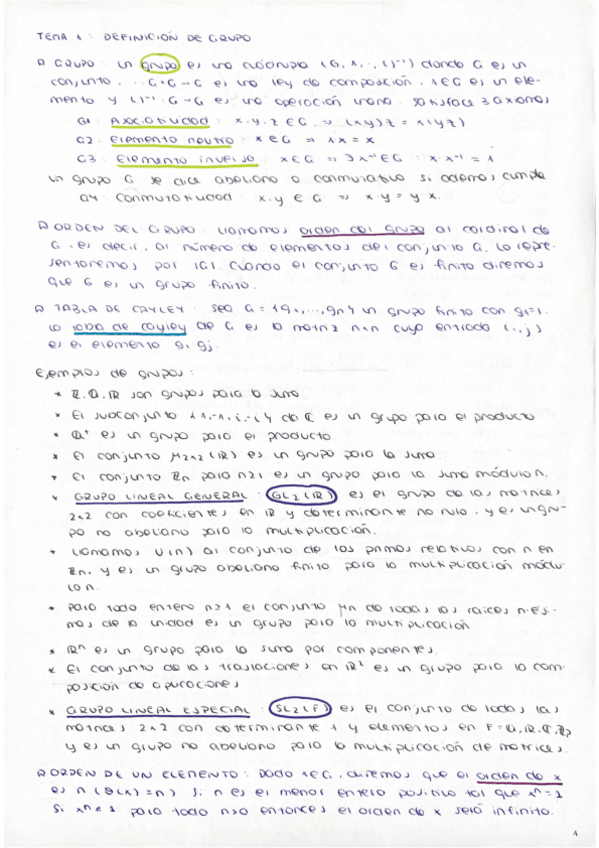 TEMA 1: DEFINICIÓN DE GRUPO
GRUPO: un grupo es una cuádrupla (G, 1, ·, ( )⁻¹) donde G es un
conjunto, · G×G→G es una ley de composición, 1∈G es un ele-
mento y ( )⁻¹: G→G es una operación unaria. Satisface 3 axiomas
G1: Asociatividad: x,y,z ∈ G ⇒ (xy)z = x(yz)
G2: Elemento neutro: x∈G ⇒ 1x = x
G3: Elemento inverso: x∈G ⇒ ∃x⁻¹∈G : x·x⁻¹ = 1
Un grupo G se dice abeliano o conmutativo si además cumple
G4: Conmutatividad: x,y ∈ G ⇒ x·y = y·x.
ORDEN DEL GRUPO: llamamos orden del grupo al cardinal de
G, es decir, al número de elementos del conjunto G. Lo repre-
sentaremos por |G|. Cuando el conjunto G es finito diremos
que G es un grupo finito.
TABLA DE CAYLEY: sea G = {g1,...,gn} un grupo finito con g1=1.
La tabla de cayley de G es la matriz n×n cuya entrada i,j
es el elemento gi gj.
Ejemplos de grupos:
* Z, Q, R son grupos para la suma.
* El subconjunto {1,-1,i,-i} de C es un grupo para el producto
* Q⁺ es un grupo para el producto.
* El conjunto M2×2(R) es un grupo para la suma.
* El conjunto Zn para n≥1 es un grupo para la suma módulo n.
* GRUPO LINEAL GENERAL: GL2(R) es el grupo de las matrices
2×2 con coeficientes en R y determinante no nulo, y es un gru-
po no abeliano para la multiplicación.
* Llamamos U(n) al conjunto de los primos relativos con n en
Zn, y es un grupo abeliano finito para la multiplicación módu-
lo n.
* Para todo entero n≥1 el conjunto μn de todas las raíces n-ési-
mas de la unidad es un grupo para la multiplicación.
* Rⁿ es un grupo para la suma por componentes.
* El conjunto de las traslaciones en R² es un grupo para la com-
posición de aplicaciones
* GRUPO LINEAL ESPECIAL: SL2(F) es el conjunto de todas las
matrices 2×2 con determinante 1 y elementos en F=Q,R,C,Zp
y es un grupo no abeliano para la multiplicación de matrices.
ORDEN DE UN ELEMENTO: Dado x∈G, diremos que el orden de x
es n (θ(x)=n) si n es el menor entero positivo tal que xⁿ=1
Si xⁿ≠1 para todo n>0 entonces el orden de x será infinito.
1